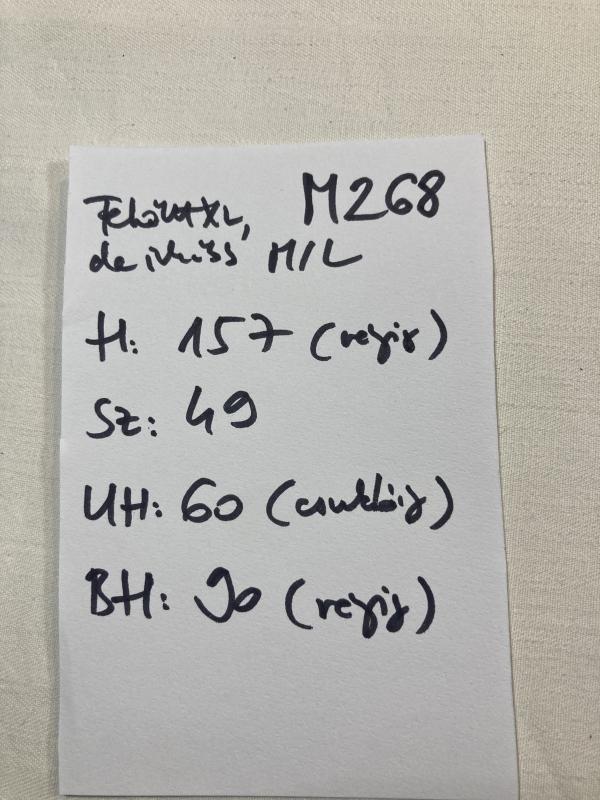 Felnőtt XL, M268
de inkább M/L
H: 157 (rejzis)
Sz: 49
UH: 60 (csuklóig)
BH: 90 (rejzis)